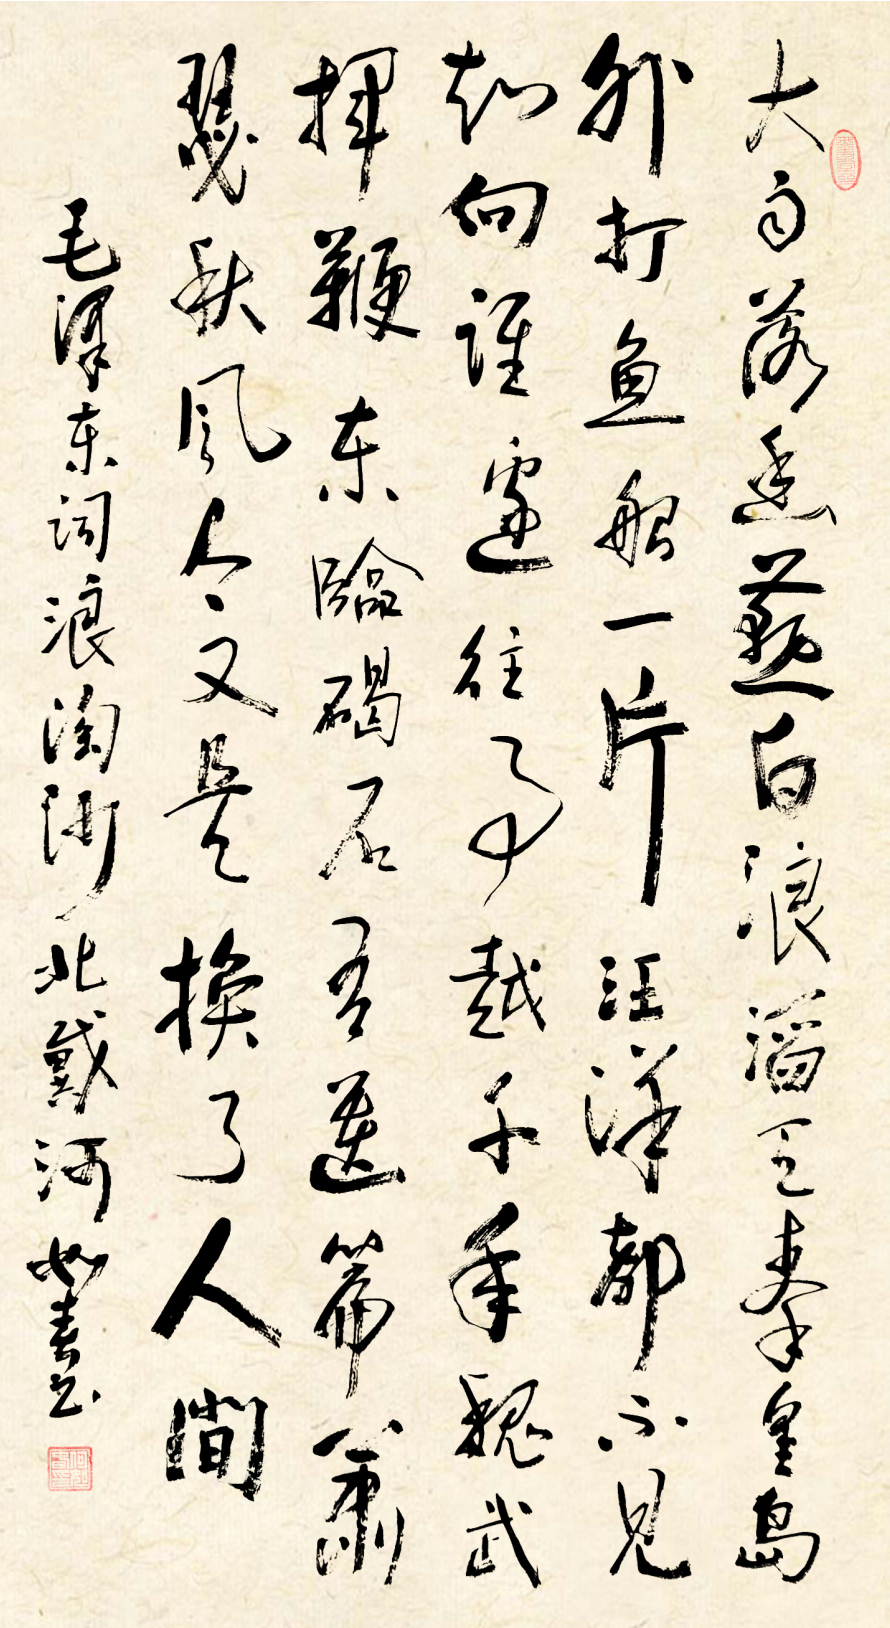 大雨落幽燕白浪滔天秦皇岛
外打鱼船一片汪洋都不见
知向谁边往事越千年魏武
挥鞭东临碣石有遗篇萧
瑟秋风今又是换了人间
毛泽东词浪淘沙北戴河如春书